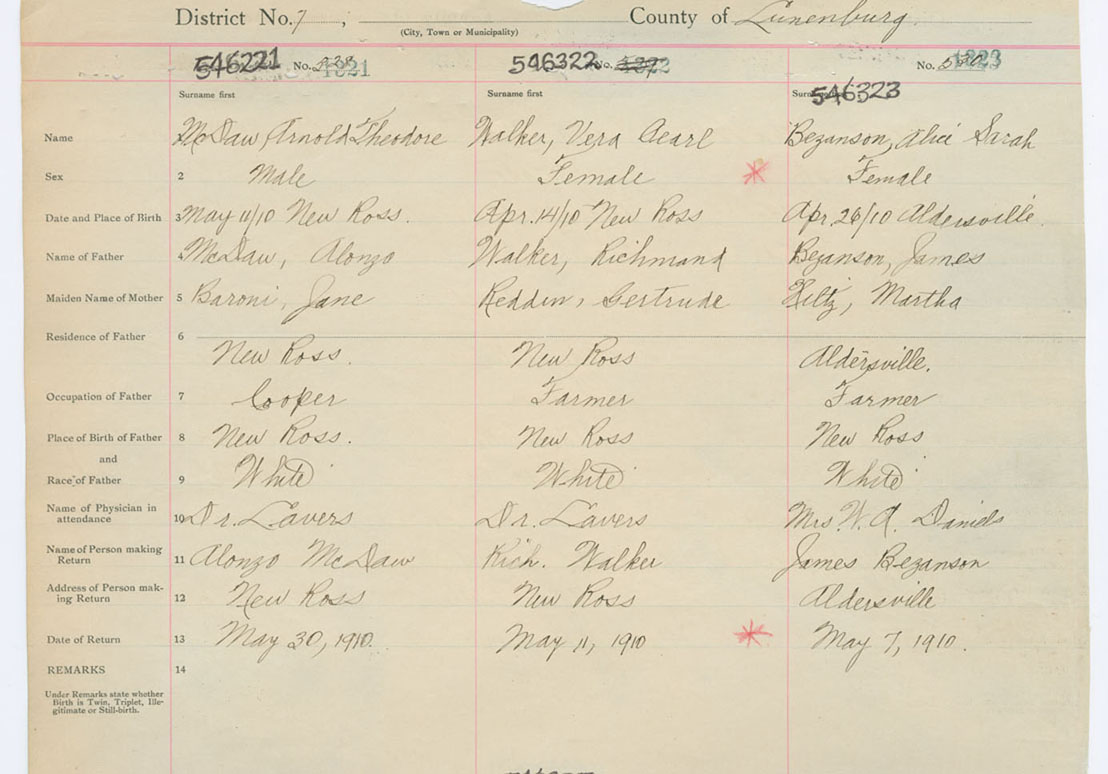 District No. 7, County of Lunenburg
(City, Town or Municipality)
546221 No. 1321 546322 No. No.
546323
Surname first Surname first
Name McDaw, Arnold Theodore Walker, Vera Pearl Bezanson, Alice Sarah
Sex 2 Male Female * Female
Date and Place of Birth 3 May 11/10 New Ross. Apr. 14/10 New Ross Apr. 26/10 Aldersville.
Name of Father 4 McDaw, Alonzo Walker, Richmand Bezanson, James
Maiden Name of Mother 5 Baroni, Jane Redden, Gertrude Hiltz, Martha
Residence of Father 6
New Ross. New Ross Aldersville.
Occupation of Father 7 Cooper Farmer Farmer
Place of Birth of Father 8 New Ross. New Ross New Ross
and
Race of Father 9 White White White
Name of Physician in
attendance 10 Dr. Lavers Dr. Lavers Mrs. W. A. Daniels
Name of Person making
Return 11 Alonzo McDaw Rich. Walker James Bezanson
Address of Person mak-
ing Return 12 New Ross New Ross Aldersville
Date of Return 13 May 30, 1910. May 11, 1910 * May 7, 1910.
REMARKS 14
Under Remarks state whether
Birth is Twin, Triplet, Ille-
gitimate or Still-birth.